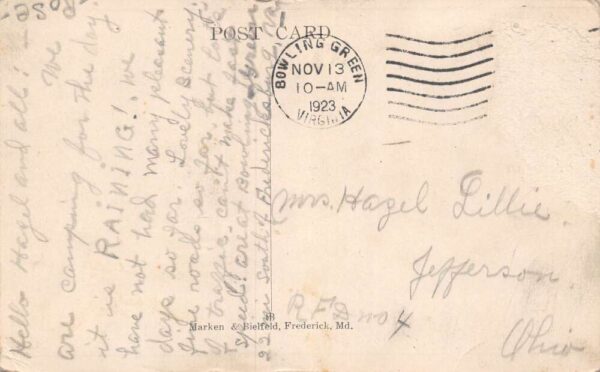 POST CARD
BOWLING GREEN
NOV 13
10-AM
1923
VIRGINIA
Hello Hazel and all! -
We
are camping for the day
it is RAINING! We
have not had many pleasant
days so far. Lovely scenery,
fine roads so far, but lots
of traffic, can't make fast
speed! are at Bowling Green
22 m. South of Fredericksburg, Va.
Mrs. Hazel Lillie.
Jefferson.
RFD no 4
Ohio
Marken & Bielfeld, Frederick, Md.